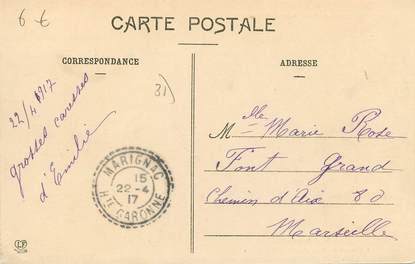 6 €
CARTE POSTALE
CORRESPONDANCE
ADRESSE
31)
22/4 1917
grosses caresses
d'Emilie
MARIGNAC
15
22-4
17
HTE GARONNE
Mlle Marie Rose
Font Grand
Chemin d'Aix 8d
Marseille